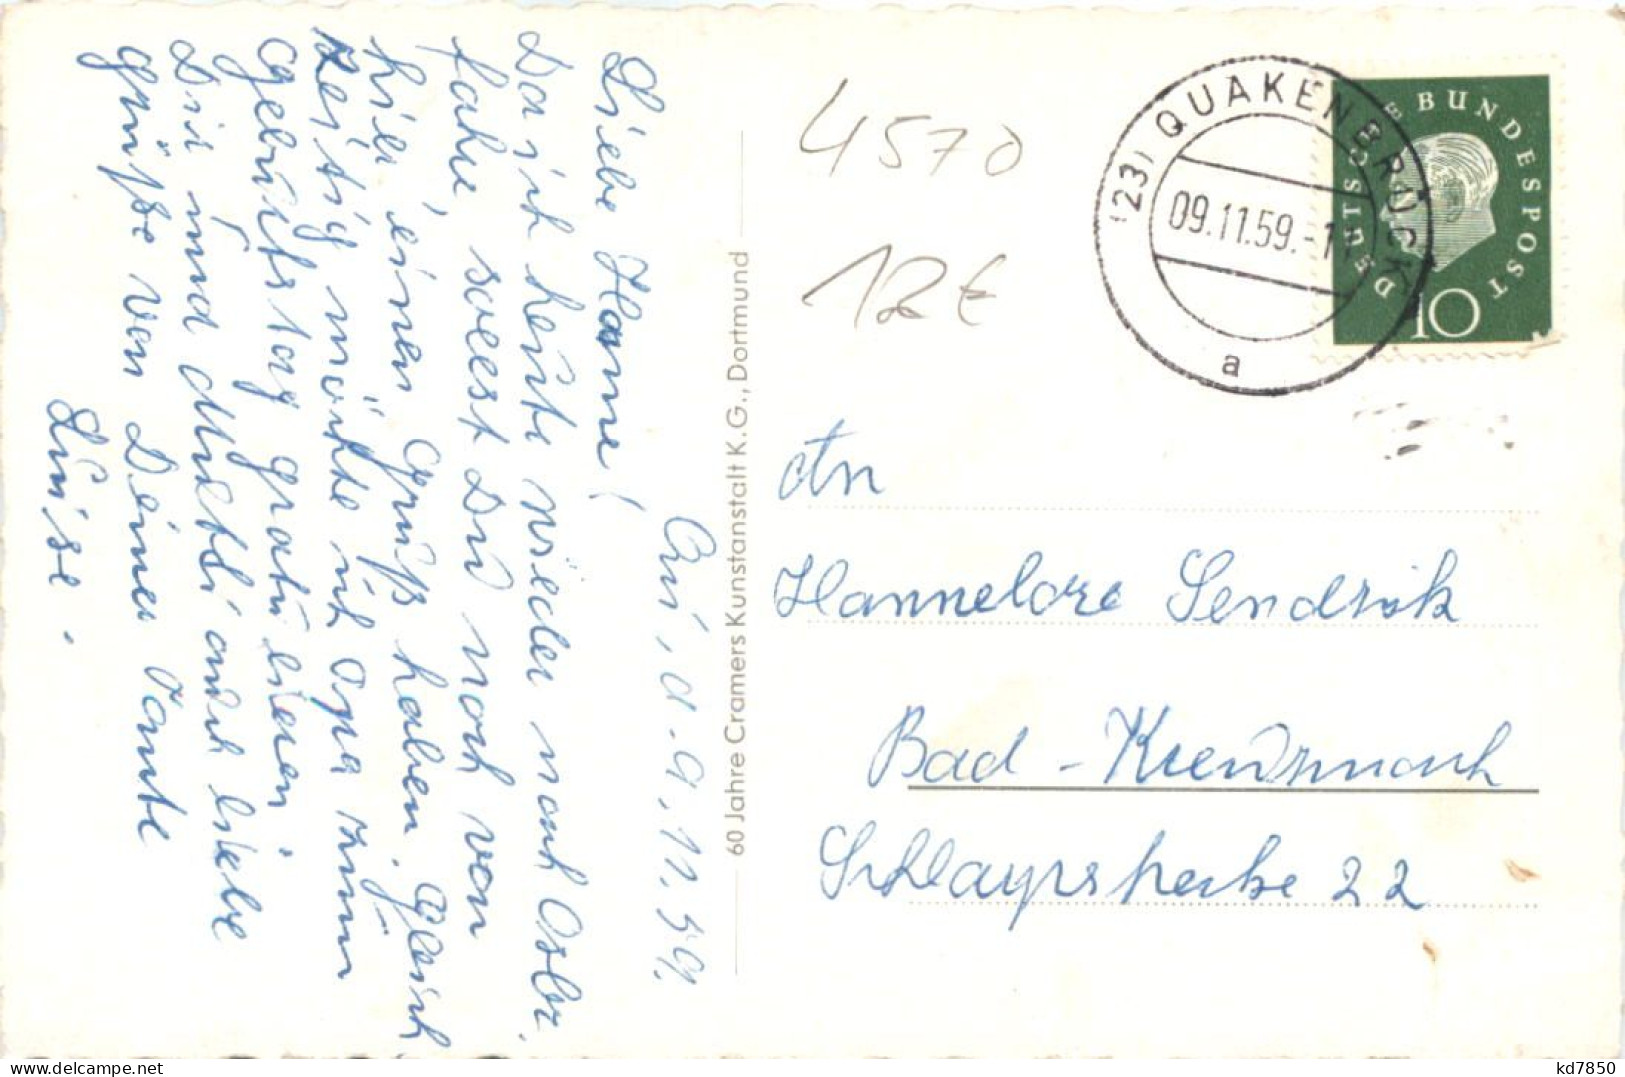 Qu, d. 9.11.59.
Liebe Hanne!
Da ich heute wieder nach Osbr.
fahre, sollst Du noch von
hier einen Gruß haben. Gleich-
zeitig möchte ich Opa zum
Geburtstag gratulieren.
Dir und Mutti auch liebe
Grüße von Deiner Tante
Luise.
60 Jahre Cramers Kunstanstalt K.G., Dortmund
4570
12€
(23) QUAKENBRÜCK
09.11.59.-1
a
DEUTSCHE BUNDESPOST
10
An
Hannelore Sendrik
Bad-Kreuznach
22
kd7850